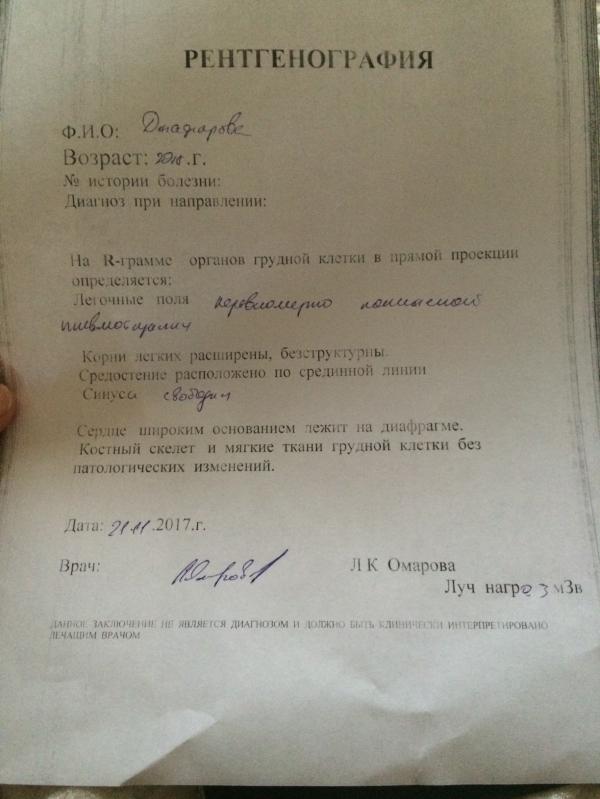 РЕНТГЕНОГРАФИЯ
Ф.И.О:
Возраст: г.
№ истории болезни:
Диагноз при направлении:
На R-грамме органов грудной клетки в прямой проекции
определяется:
Легочные поля
Корни легких расширены, безструктурны.
Средостение расположено по срединной линии
Синусы свободны
Сердце широким основанием лежит на диафрагме.
Костный скелет и мягкие ткани грудной клетки без
патологических изменений.
Дата: 21.11.2017.г.
Врач: Л К Омарова
Луч нагр 0,3 мЗв
ДАННОЕ ЗАКЛЮЧЕНИЕ НЕ ЯВЛЯЕТСЯ ДИАГНОЗОМ И ДОЛЖНО БЫТЬ КЛИНИЧЕСКИ ИНТЕРПРЕТИРОВАНО
ЛЕЧАЩИМ ВРАЧОМ